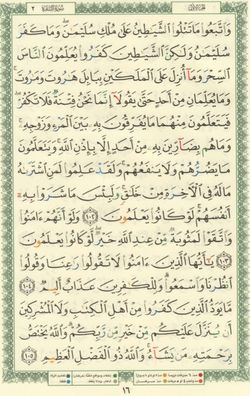 وَٱتَّبَعُوا۟ مَا تَتْلُوا۟ ٱلشَّيَـٰطِينُ عَلَىٰ مُلْكِ سُلَيْمَـٰنَ ۖ وَمَا كَفَرَ
سُلَيْمَـٰنُ وَلَـٰكِنَّ ٱلشَّيَـٰطِينَ كَفَرُوا۟ يُعَلِّمُونَ ٱلنَّاسَ
ٱلسِّحْرَ وَمَآ أُنزِلَ عَلَى ٱلْمَلَكَيْنِ بِبَابِلَ هَـٰرُوتَ وَمَـٰرُوتَ ۚ
وَمَا يُعَلِّمَانِ مِنْ أَحَدٍ حَتَّىٰ يَقُولَآ إِنَّمَا نَحْنُ فِتْنَةٌ فَلَا تَكْفُرْ ۖ
فَيَتَعَلَّمُونَ مِنْهُمَا مَا يُفَرِّقُونَ بِهِۦ بَيْنَ ٱلْمَرْءِ وَزَوْجِهِۦ ۚ
وَمَا هُم بِضَآرِّينَ بِهِۦ مِنْ أَحَدٍ إِلَّا بِإِذْنِ ٱللَّهِ ۚ وَيَتَعَلَّمُونَ
مَا يَضُرُّهُمْ وَلَا يَنفَعُهُمْ ۚ وَلَقَدْ عَلِمُوا۟ لَمَنِ ٱشْتَرَىٰهُ
مَا لَهُۥ فِى ٱلْـَٔاخِرَةِ مِنْ خَلَـٰقٍ ۚ وَلَبِئْسَ مَا شَرَوْا۟ بِهِۦٓ
أَنفُسَهُمْ ۚ لَوْ كَانُوا۟ يَعْلَمُونَ ١٠٢ وَلَوْ أَنَّهُمْ ءَامَنُوا۟
وَٱتَّقَوْا۟ لَمَثُوبَةٌ مِّنْ عِندِ ٱللَّهِ خَيْرٌ ۖ لَّوْ كَانُوا۟ يَعْلَمُونَ
١٠٣ يَـٰٓأَيُّهَا ٱلَّذِينَ ءَامَنُوا۟ لَا تَقُولُوا۟ رَٰعِنَا وَقُولُوا۟
ٱنظُرْنَا وَٱسْمَعُوا۟ ۗ وَلِلْكَـٰفِرِينَ عَذَابٌ أَلِيمٌ ١٠٤
مَّا يَوَدُّ ٱلَّذِينَ كَفَرُوا۟ مِنْ أَهْلِ ٱلْكِتَـٰبِ وَلَا ٱلْمُشْرِكِينَ
أَن يُنَزَّلَ عَلَيْكُم مِّنْ خَيْرٍ مِّن رَّبِّكُمْ ۗ وَٱللَّهُ يَخْتَصُّ
بِرَحْمَتِهِۦ مَن يَشَآءُ ۚ وَٱللَّهُ ذُو ٱلْفَضْلِ ٱلْعَظِيمِ ١٠٥
١٦